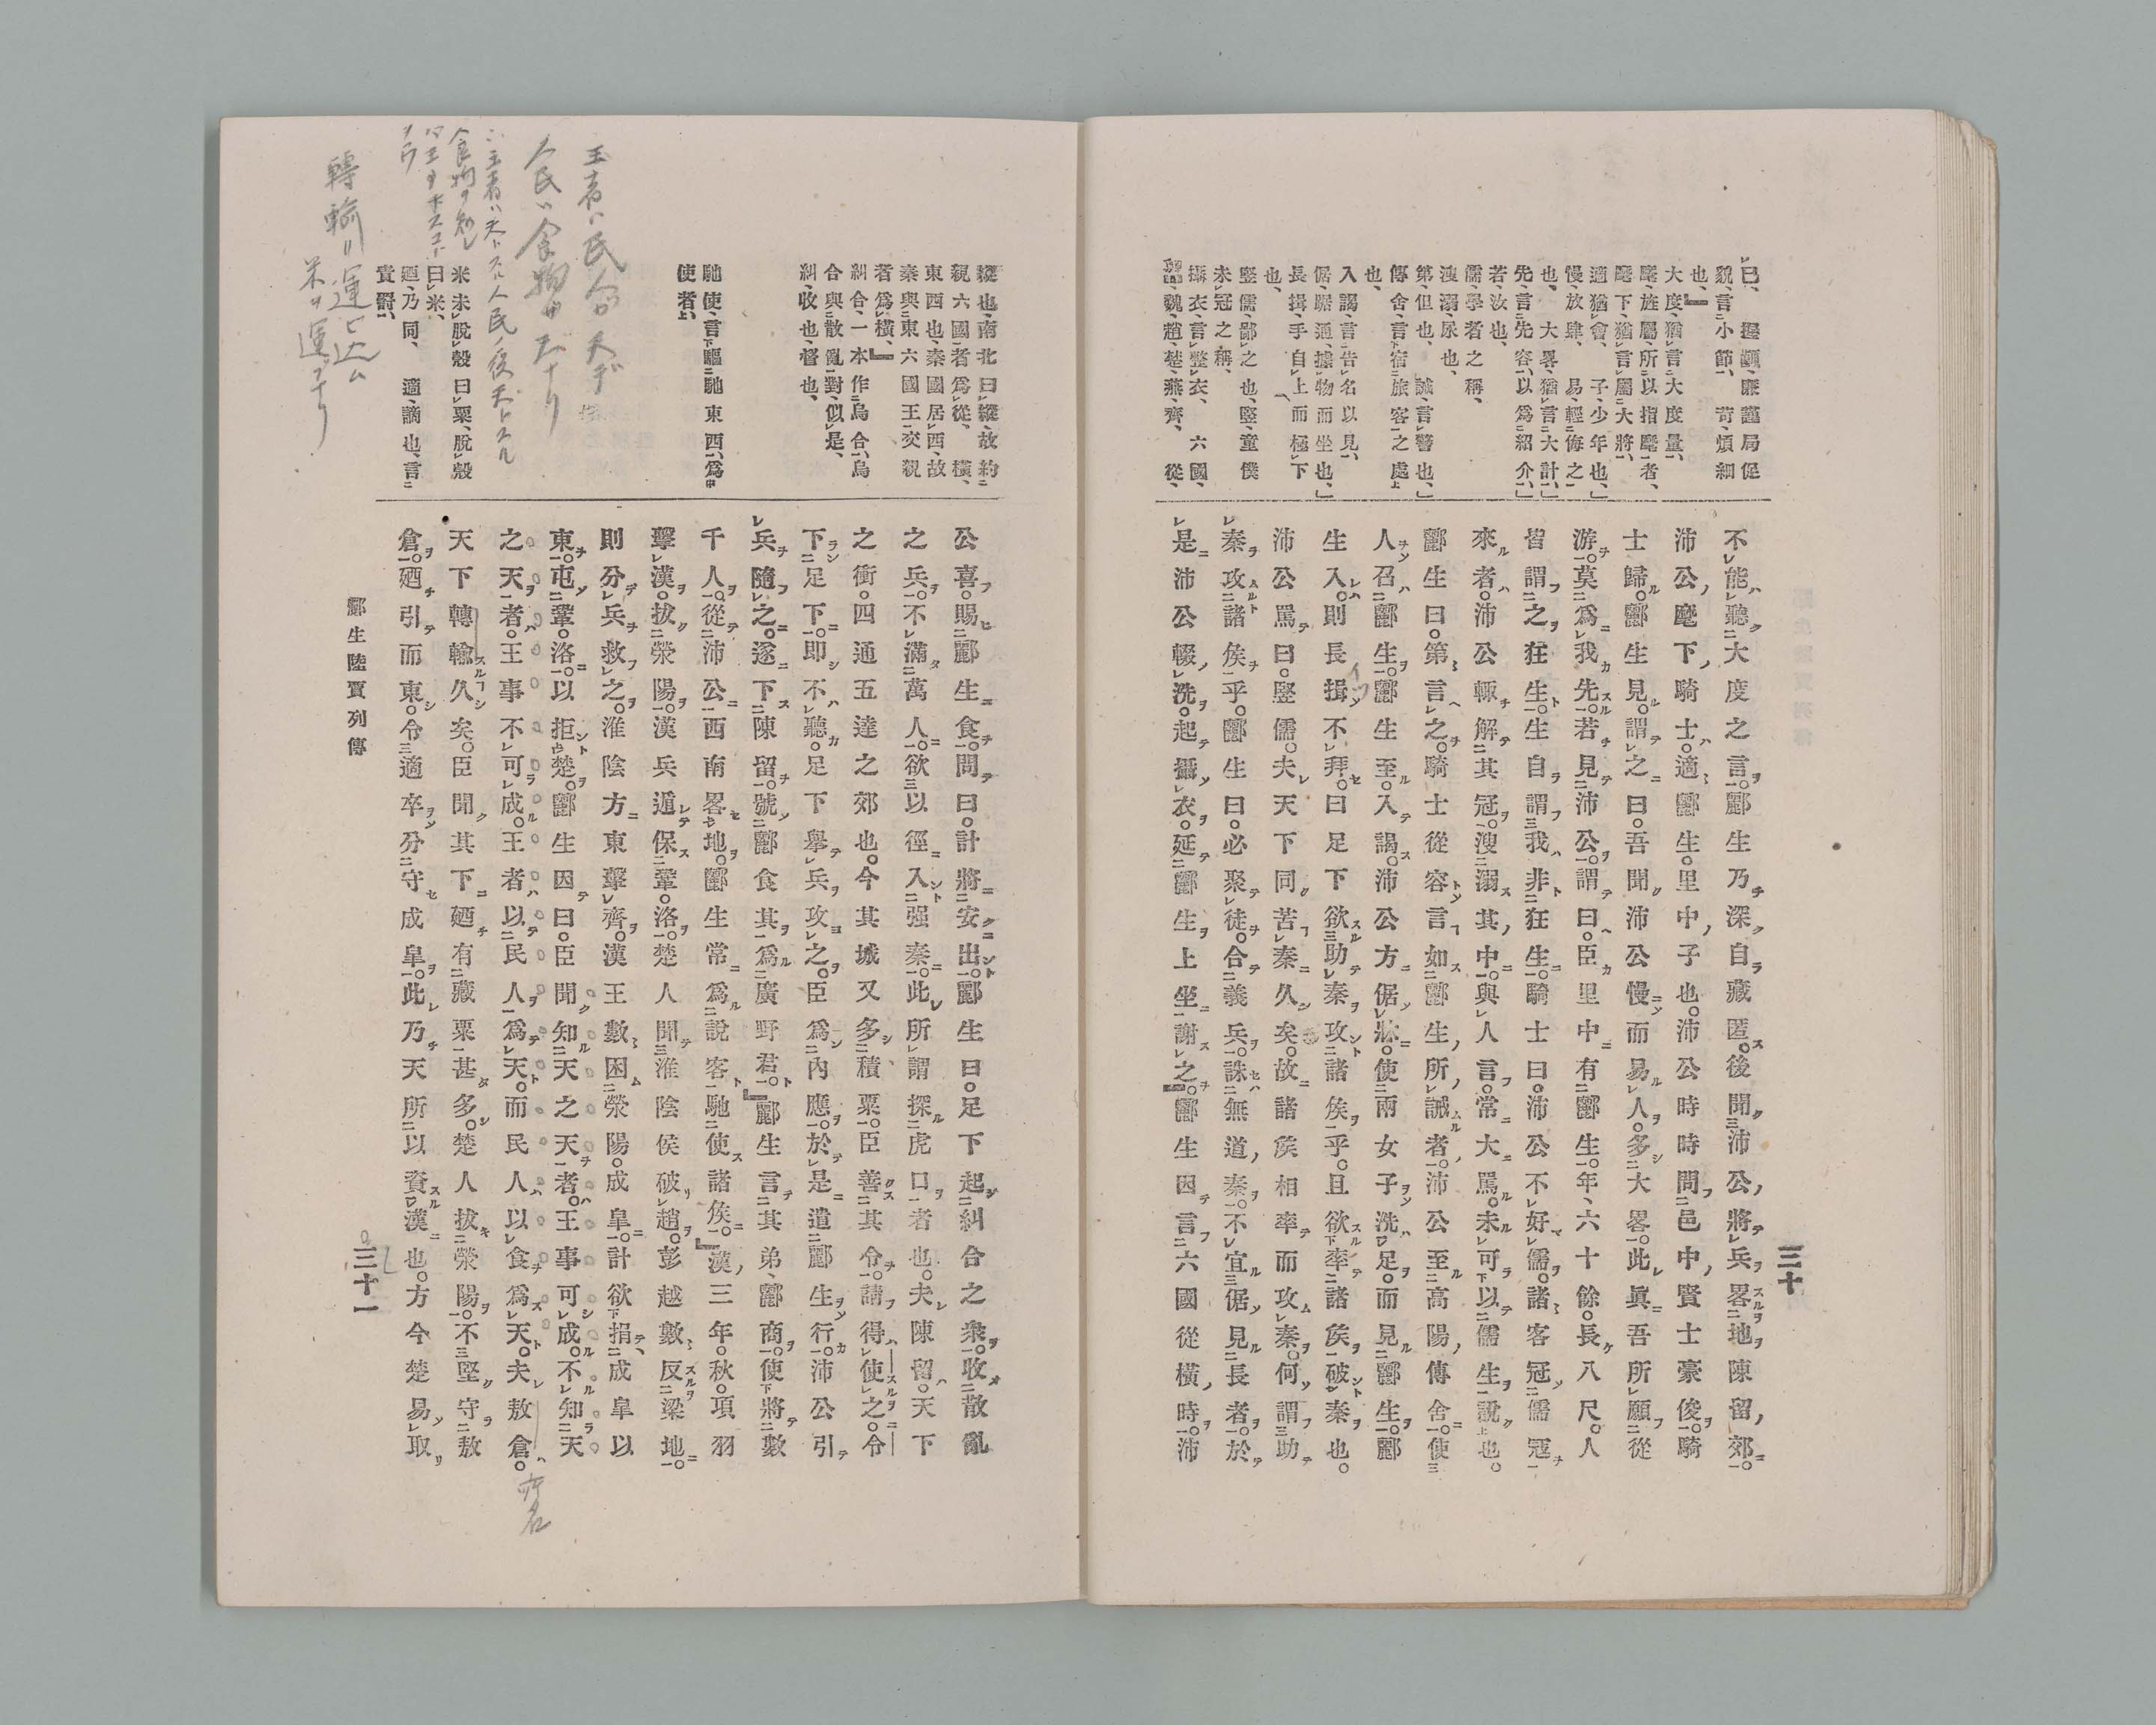 已、握齱、廉謹局促
貌、言小節、苛、煩細
也、』
大度、猶言大度量、
麾、旌屬、所以指麾者、
麾下、猶言屬大將、
適猶會、子、少年也、」
慢、放肆、易、輕侮之
也、大畧、猶言大計、」
先、言先容、以爲紹介、」
若、汝也、
儒、學者之稱、
溲溺、尿也、
第、但也、誠、言警也、」
傳舍、言宿旅客之處
也、
入謁、言告名以見、
倨、踞通、據物而坐也、」
長揖、手自上而極下
也、
豎儒、鄙之也、豎、童僕
未冠之稱、
攝衣、言整衣、六國、
韓、魏、趙、楚、燕、齊、從、
不能聽大度之言。酈生乃深自藏匿。後聞沛公將兵畧地陳留郊。
沛公麾下騎士。適酈生里中子也。沛公時時問邑中賢士豪俊。騎
士歸。酈生見。謂之曰吾聞沛公慢而易人。多大畧。此眞吾所願從
游。莫爲我先。若見沛公。謂曰。臣里中有酈生。年六十餘。長八尺。人
皆謂之狂生。生自謂我非狂生。騎士曰。沛公不好儒。諸客冠儒冠
來者。沛公輒解其冠。溲溺其中。與人言。常大罵。未可以儒生說也。
酈生曰。第言之。騎士從容言如酈生所誡者。沛公至高陽傳舍。使
人召酈生。酈生至。入謁。沛公方倨牀。使兩女子洗足。而見酈生。酈
生入。則長揖不拜。曰足下欲助秦攻諸侯乎。且欲率諸侯破秦也。
沛公罵曰。豎儒。夫天下同苦秦久矣。故諸侯相率而攻秦。何謂助
秦攻諸侯乎。酈生曰。必聚徒。合義兵。誅無道秦。不宜倨見長者。於
是沛公輟洗。起攝衣。延酈生上坐。謝之。』酈生因言六國從橫時。沛
三十
縱也、南北曰縱、故約
親六國者爲從、橫、
東西也、秦國居西、故
秦與東六國王交親
者爲橫、』
糾合、一本作烏合、烏
合與散亂對、似是、
糾、收也、督也、
馳使、言驅馳東西、爲
使者、
米未脫殼曰粟、脫殼
曰米、
廼、乃同、適、謫也、言
責罰、
公喜。賜酈生食。問曰。計將安出。酈生曰。足下起糾合之衆。收散亂
之兵。不滿萬人。欲以徑入强秦。此所謂探虎口者也。夫陳留。天下
之衝。四通五達之郊也。今其城又多積粟。臣善其令。請得使之。令
下足下。即不聽。足下擧兵攻之。臣爲內應。於是遣酈生行。沛公引
兵隨之。遂下陳留。號酈食其爲廣野君。』酈生言其弟酈商。使將數
千人。從沛公西南畧地。酈生常爲說客。馳使諸侯。』漢三年。秋。項羽
擊漢。拔滎陽。漢兵遁保鞏洛。楚人聞淮陰侯破趙。彭越數反梁地。
則分兵救之。淮陰方東擊齊。漢王數困滎陽。成皐。計欲捐成皐以
東。屯鞏。洛以拒楚。酈生因曰。臣聞知天之天者。王事可成。不知天
之天者。王事不可成。王者以民人爲天。而民人以食爲天。夫敖倉。
天下轉輸久矣。臣聞其下廼有藏粟甚多。楚人拔滎陽。不堅守敖
倉。廼引而東。令適卒分守成皐。此乃天所以資漢也。方今楚易取
酈生陸賈列傳
三十一
王者ハ民ガ天デ
人民ハ食物ガ天ナリ
轉輸＝運ビ込ム
米ヲ運ブナリ